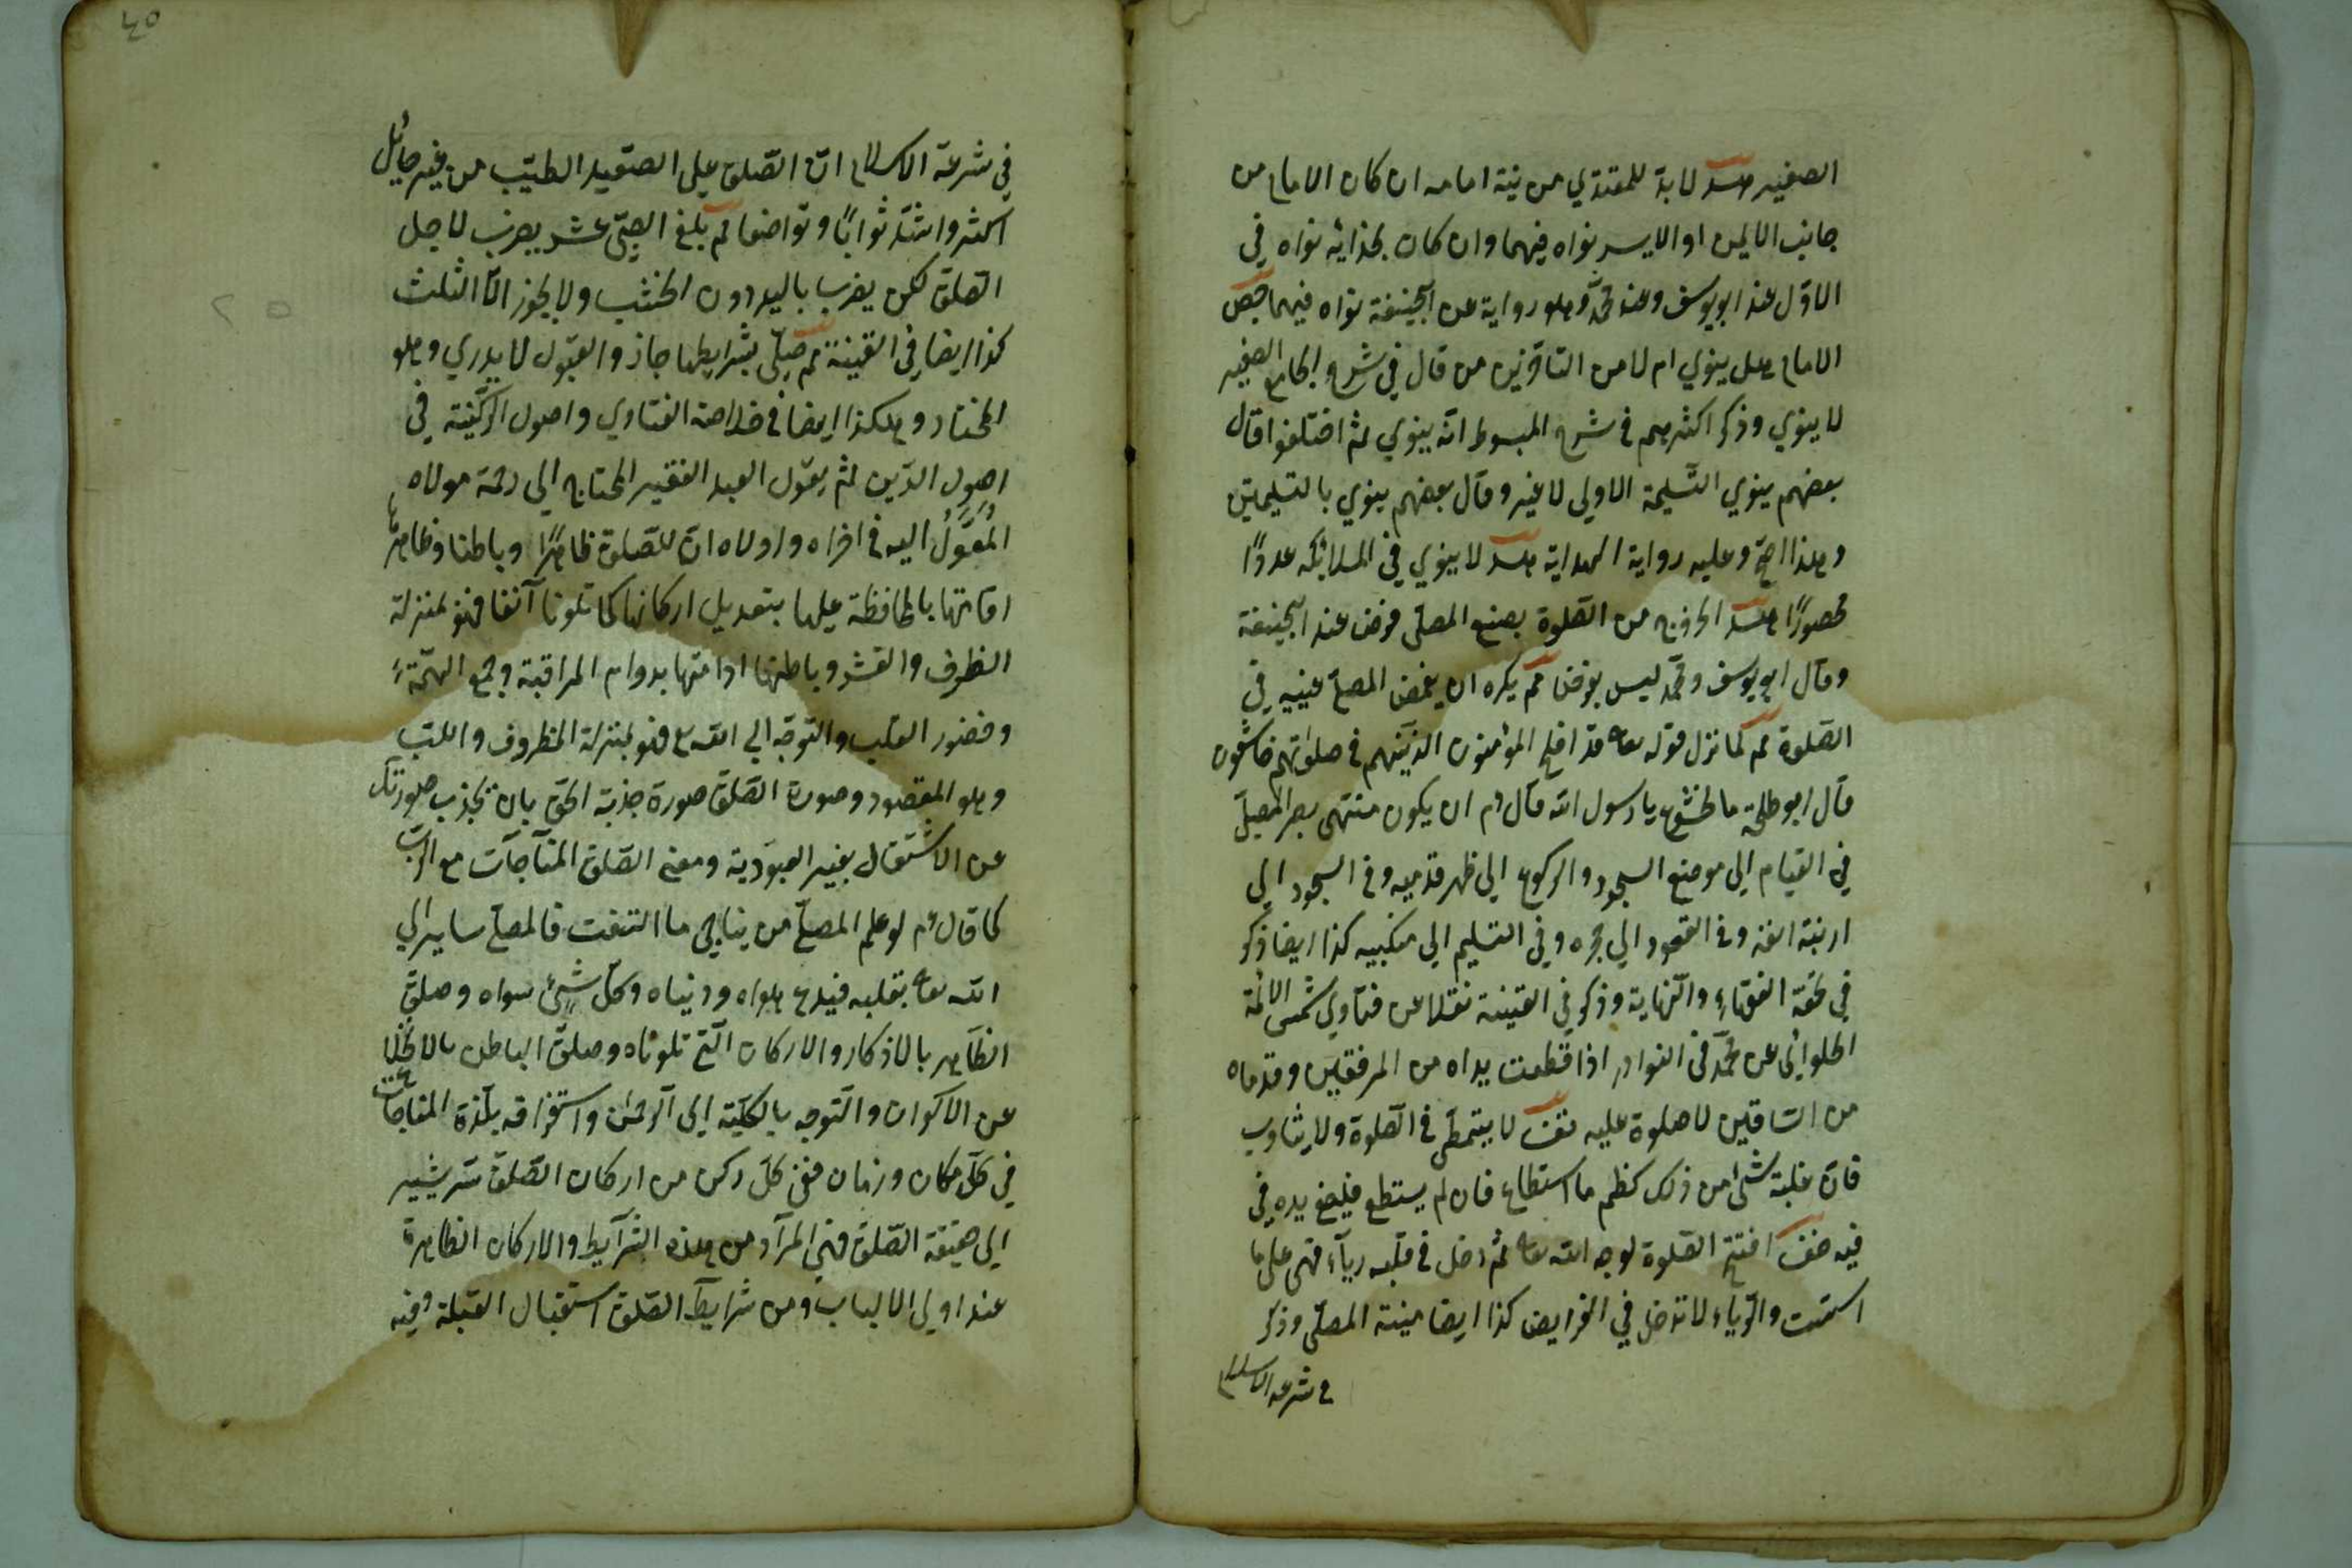 الصغير مسئلة لابد للمقتدي من نية امامه ان كان الامام من
جانب الايمن او الايسر نواه فيهما وان كان بحذائه نواه في
الاول عند ابو يوسف وعند محمد وهو رواية عن ابيحنيفة نواه فيهما جص
الامام هل ينوي ام لا من المتأخرين من قال في شرح الجامع الصغير
لا ينوي وذكر اكثرهم في شرح المبسوط انه ينوي ثم اختلفوا قال
بعضهم ينوي التسليمة الاولى لا غير وقال بعضهم ينوي بالتسليمتين
وهذا اصح وعليه رواية الهداية مسئلة لا ينوي في الملائكه عددًا
محصورًا مسئلة الخروج من الصلوة بصنع المصلى فرض عند ابيحنيفة
وقال ابو يوسف ومحمد ليس بفرض مم يكره ان يغمض المصلي عينيه في
الصلوة مم لما نزل قوله تعا قد افلح المؤمنون الذينهم في صلواتهم خاشعون
قال ابو طلحة ما الخشوع يا رسول الله قال ءم ان يكون منتهى بصر المصلي
في القيام الي موضع السجود والركوع الي ظهر قدميه وفي السجود الي
ارنبة انفه وفي القعود الي حجره وفي التسليم الي منكبيه كذا ايضا ذكر
في تحفة الفقهاء والنهاية وذكر في القينة نقلا عن فتاوي شمس الائمة
الحلوائى عن محمد في النوادر اذا قطعت يداه من المرفقين وقدماه
من الساقين لا صلوة عليه تفت لا يتمطى في الصلوة ولا يتثاوب
فان غلبة شئ من ذلك كظم ما استطاع فان لم يستطع فليضع يده في
فيه ضف افتتح الصلوة لوجه الله تعا ثم دخل في قلبه رياء فهي على ما
اسست والرياء لا تدخل في الفرايض كذا ايضا منية المصلى وذكر
في شرعة الاسلام
٤٥
في شرعة الاسلام ان الصلوة على الصعيد الطيب من غير حائل
اكثر واشد ثوابًا وتواضعا مم بلغ الصبى عشر يضرب لاجل
الصلوة لكن يضرب باليد دون الخشب ولا يجوز الا الثلث
كذا ايضا في القينة مم صلى بشرايطها جاز والقبول لا يدري وهو
المختار وهكذا ايضا في خلاصة الفتاوي واصول الركنية في
اصول الدين ثم يقول العبد الفقير المحتاج الي رحمة مولاه
المُعَوَّلُ اليه في اخراه واولاه ان للصلوة ظاهرًا وباطنا وظاهرها
اقامتها بالمحافظة عليها بتعديل اركانها كما تلونا آنفا فهو بمنزلة
الظرف والقشر وباطنها ادامتها بدوام المراقبة وجمع الهمة
وحضور القلب والتوجه الي الله تع فهو بمنزلة المظروف واللب
وهو المقصود وصورة الصلوة صورة جذبة الحق بان يجذب صورتك
عن الاشتغال بغير العبودية ومعنى الصلوة المناجات مع الرب
كما قال ءم لو علم المصلي من يناجي ما التفت فالمصلي ساير الي
الله تعا بقلبه فيدع هواه ودنياه وكل شيئ سواه وصلوة
الظاهر بالاذكار والاركان التي تلوناه وصلوة الباطن بالانخلاع
عن الاكوان والتوجه بالكلية الى الرحمن واستغراقه بلذة المناجات
في كل مكان وزمان ففي كل ركن من اركان الصلوة سر يشير
الي حقيقة الصلوة فهي المراد من هذه الشرايط والاركان الظاهرة
عند اولي الالباب ومن شرايط الصلوة استقبال القبلة وفيه